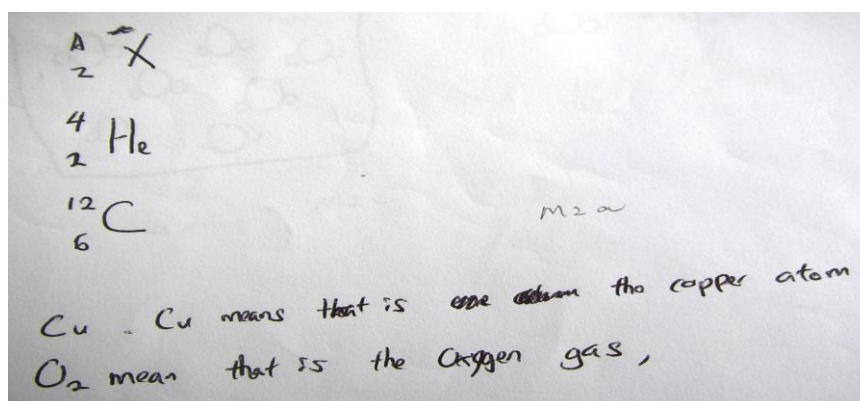 A
Z X
4
2 He
12
6 C
Cu . Cu means that is the copper atom
O2 mean that is the Oxygen gas,